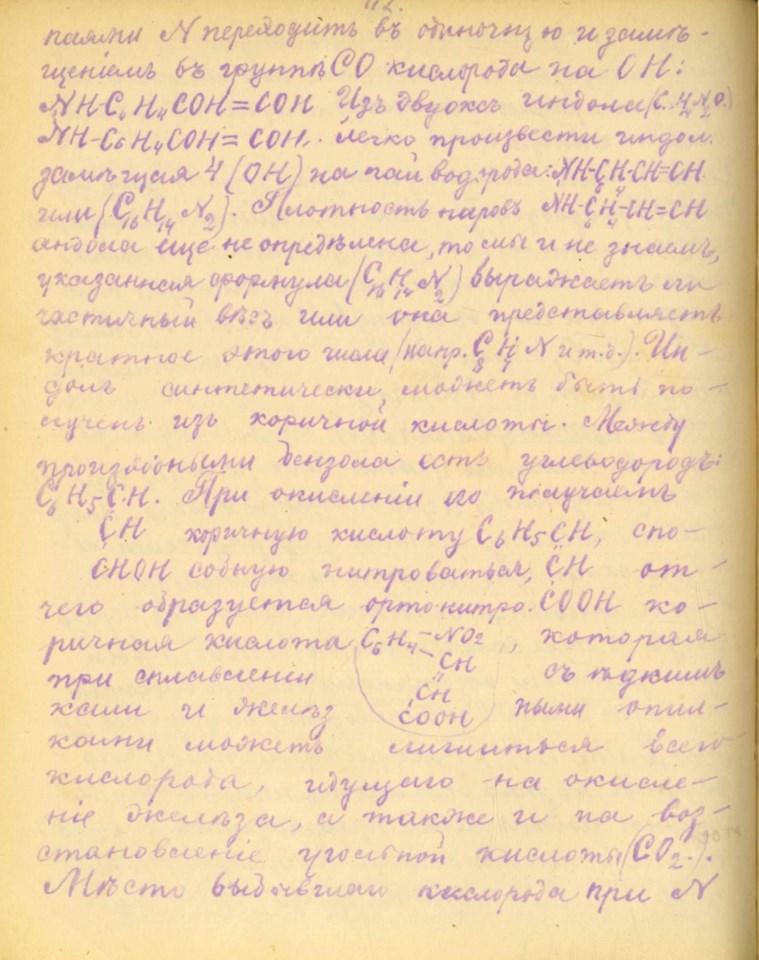 112.
паями N переходитъ въ одиночную и замѣ-
щеніемъ въ группѣ CO кислорода на OH:
NH-C6H4COH=COH Изъ двуокс индола (C H N O)
NH-C6H4COH=COH. легко произвести индол.
замѣщая 4 (OH) на пай водорода: NH-C6H4-CH=CH
или (C16H14N2). Плотность паровъ NH-C6H4-CH=CH
индола еще не опредѣлена, то мы и не знаемъ,
указанная формула (C16H14N2) выражаетъ ли
частичный вѣсъ или она представляетъ
кратное этого числа (напр. C8H7N и т.д.). Ин-
долъ синтетически можетъ быть по-
лученъ изъ коричной кислоты. Между
производными бензола есть углеводородъ:
C6H5CH. При окисленіи его получаемъ
CH коричную кислоту C6H5CH, спо-
CHOH собную нитроваться, CH от-
чего образуется ортонитро. COOH ко-
ричная кислота C6H4-NO2, которая
-CH
при сплавленіи съ ѣдкимъ
CH
кали и желѣз COOH ными опил-
ками можетъ лишиться всего
кислорода, идущаго на окисле-
ніе желѣза, а также и на воз-
становленіе угольной кислоты (CO2.).
Мѣсто выбывшаго кислорода при N